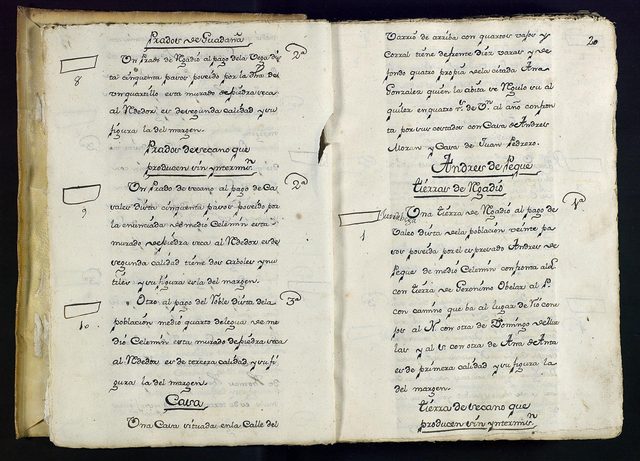 Prados de Guadaña
8
Un Prado de Rgadio al pago de la Vega dis
2ª
ta cinquenta pasos poseido por la dha. de
un quartillo esta murado de piedra seca
al Rdedor es de segunda calidad y su
figura la del margen.
Prados de secano que
producen sin yntermisⁿ
9
Un Prado de secano al pago de Ca
2ª
vales dista cinquenta pasos poseido por
la enunciada de medio Celemin esta
murado de piedra seca al Rdedor es de
segunda calidad tiene dos arboles ynu
tiles y su figura es la del margen.
10.
Otro al pago del Roble dista de la
3ª
población medio quarto de legua de me
dio Celemin esta murado de piedra seca
al Rdedor es de tercera calidad y su fi
gura la del margen.
Casa
Una Casa situada en la Calle del
20
Varrio de arriba con quartos vajos y
Corral tiene de frente diez varas y de
fondo quatro propia de la citada Ana
Gonzalez quien la abita se Rgulo su al
quiler en quatro rˢ. de Vⁿ. al año confron
ta por sus costados con Casa de Andres
Moran y Casa de Juan Pedrero.
Andres de Peque
tierras de Rgadio
1
Una tierra de Rgadio al pago de
1ª
Valeo dista de la población veinte pa
sos poseida por el expresado Andres de
Peque de medio Celemin confronta al L
con tierra de Geronimo Obelar al P.
con camino que ba al lugar de Rio cone
jos al N con otra de Domingo de
las y al S con otra de Ana de Anta
es de primera calidad y su figura la
del margen.
tierra de secano que
producen sin yntermisⁿ